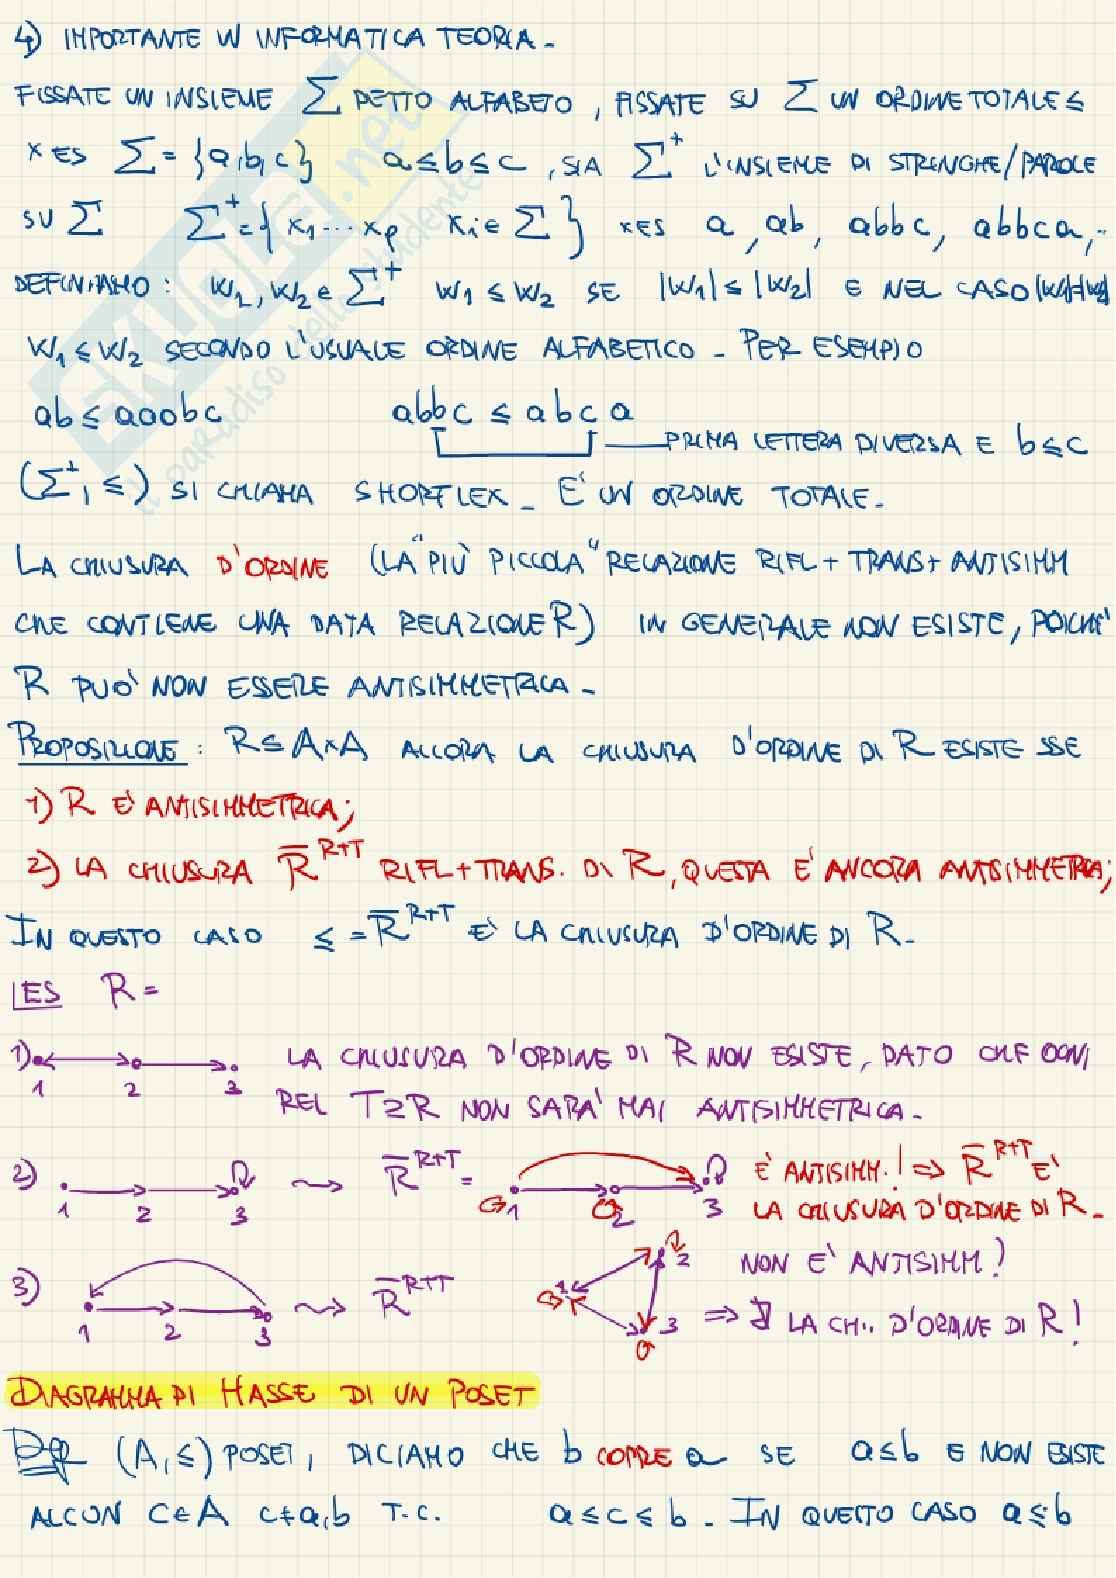 4) IMPORTANTE IN INFORMATICA TEORICA.
FISSATE UN INSIEME Σ DETTO ALFABETO, FISSATE SU Σ UN ORDINE TOTALE ≤
x ES Σ = {a,b,c} a ≤ b ≤ c, SIA Σ⁺ L'INSIEME DI STRINGHE/PAROLE
SU Σ Σ⁺ = { x₁ ... xₚ xᵢ ∈ Σ } x ES a, ab, abbc, abbca, ..
DEFINIAMO: W₁, W₂ ∈ Σ⁺ W₁ ≤ W₂ SE |W₁| ≤ |W₂| E NEL CASO |W₁|=|W₂|
W₁ ≤ W₂ SECONDO L'USUALE ORDINE ALFABETICO. PER ESEMPIO
ab ≤ aaabc abbc ≤ abca
PRIMA LETTERA DIVERSA E b ≤ c
(Σ⁺, ≤) SI CHIAMA SHORTLEX. E' UN ORDINE TOTALE.
LA CHIUSURA D'ORDINE (LA "PIÙ PICCOLA" RELAZIONE RIFL + TRANS + ANTISIMM
CHE CONTIENE UNA DATA RELAZIONE R) IN GENERALE NON ESISTE, POICHE'
R PUO' NON ESSERE ANTISIMMETRICA.
PROPOSIZIONE: R ⊆ A×A ALLORA LA CHIUSURA D'ORDINE DI R ESISTE SSE
1) R E' ANTISIMMETRICA;
2) LA CHIUSURA R̅ᴿ⁺ᵀ RIFL+TRANS. DI R, QUESTA E' ANCORA ANTISIMMETRICA;
IN QUESTO CASO ≤ = R̅ᴿ⁺ᵀ E' LA CHIUSURA D'ORDINE DI R.
ES R =
1) 1 2 3 LA CHIUSURA D'ORDINE DI R NON ESISTE, DATO CHE OGNI
REL T ⊇ R NON SARA' MAI ANTISIMMETRICA.
2) 1 2 3 ⇝ R̅ᴿ⁺ᵀ = 1 2 3 E' ANTISIMM.! ⇒ R̅ᴿ⁺ᵀ E'
LA CHIUSURA D'ORDINE DI R.
3) 1 2 3 ⇝ R̅ᴿ⁺ᵀ 1 2 3 NON E' ANTISIMM!
⇒ ∄ LA CHI.. D'ORDINE DI R!
DIAGRAMMA DI HASSE DI UN POSET
Def (A, ≤) POSET, DICIAMO CHE b COPRE a SE a ≤ b E NON ESISTE
ALCUN C ∈ A C ≠ a,b T.C. a ≤ c ≤ b. IN QUESTO CASO a ⋖ b
SKUOLA.net
il paradiso dello studente